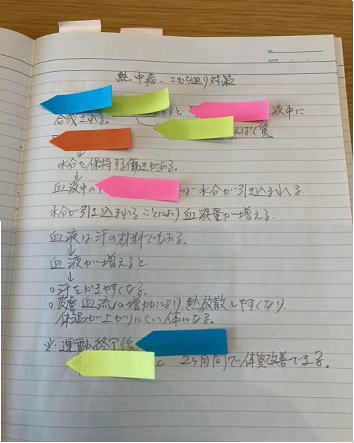 No.
DATE
熱中症、こむら返り対策
と 液中に
合成される。
は質
↓
水分を保持する働きがある。
↓
血液中の が 水分が引き込まれる
水分が引き込まれることにより血液量が増える.
血液は汗の材料でもある。
↓
血液が増えると
↓
○汗をかきやすくなる。
○皮膚血流の増加により、熱放散しやすくなり
体温が上がりにくい体になる。
※運動終了後
2ヶ月間で体質改善できる。